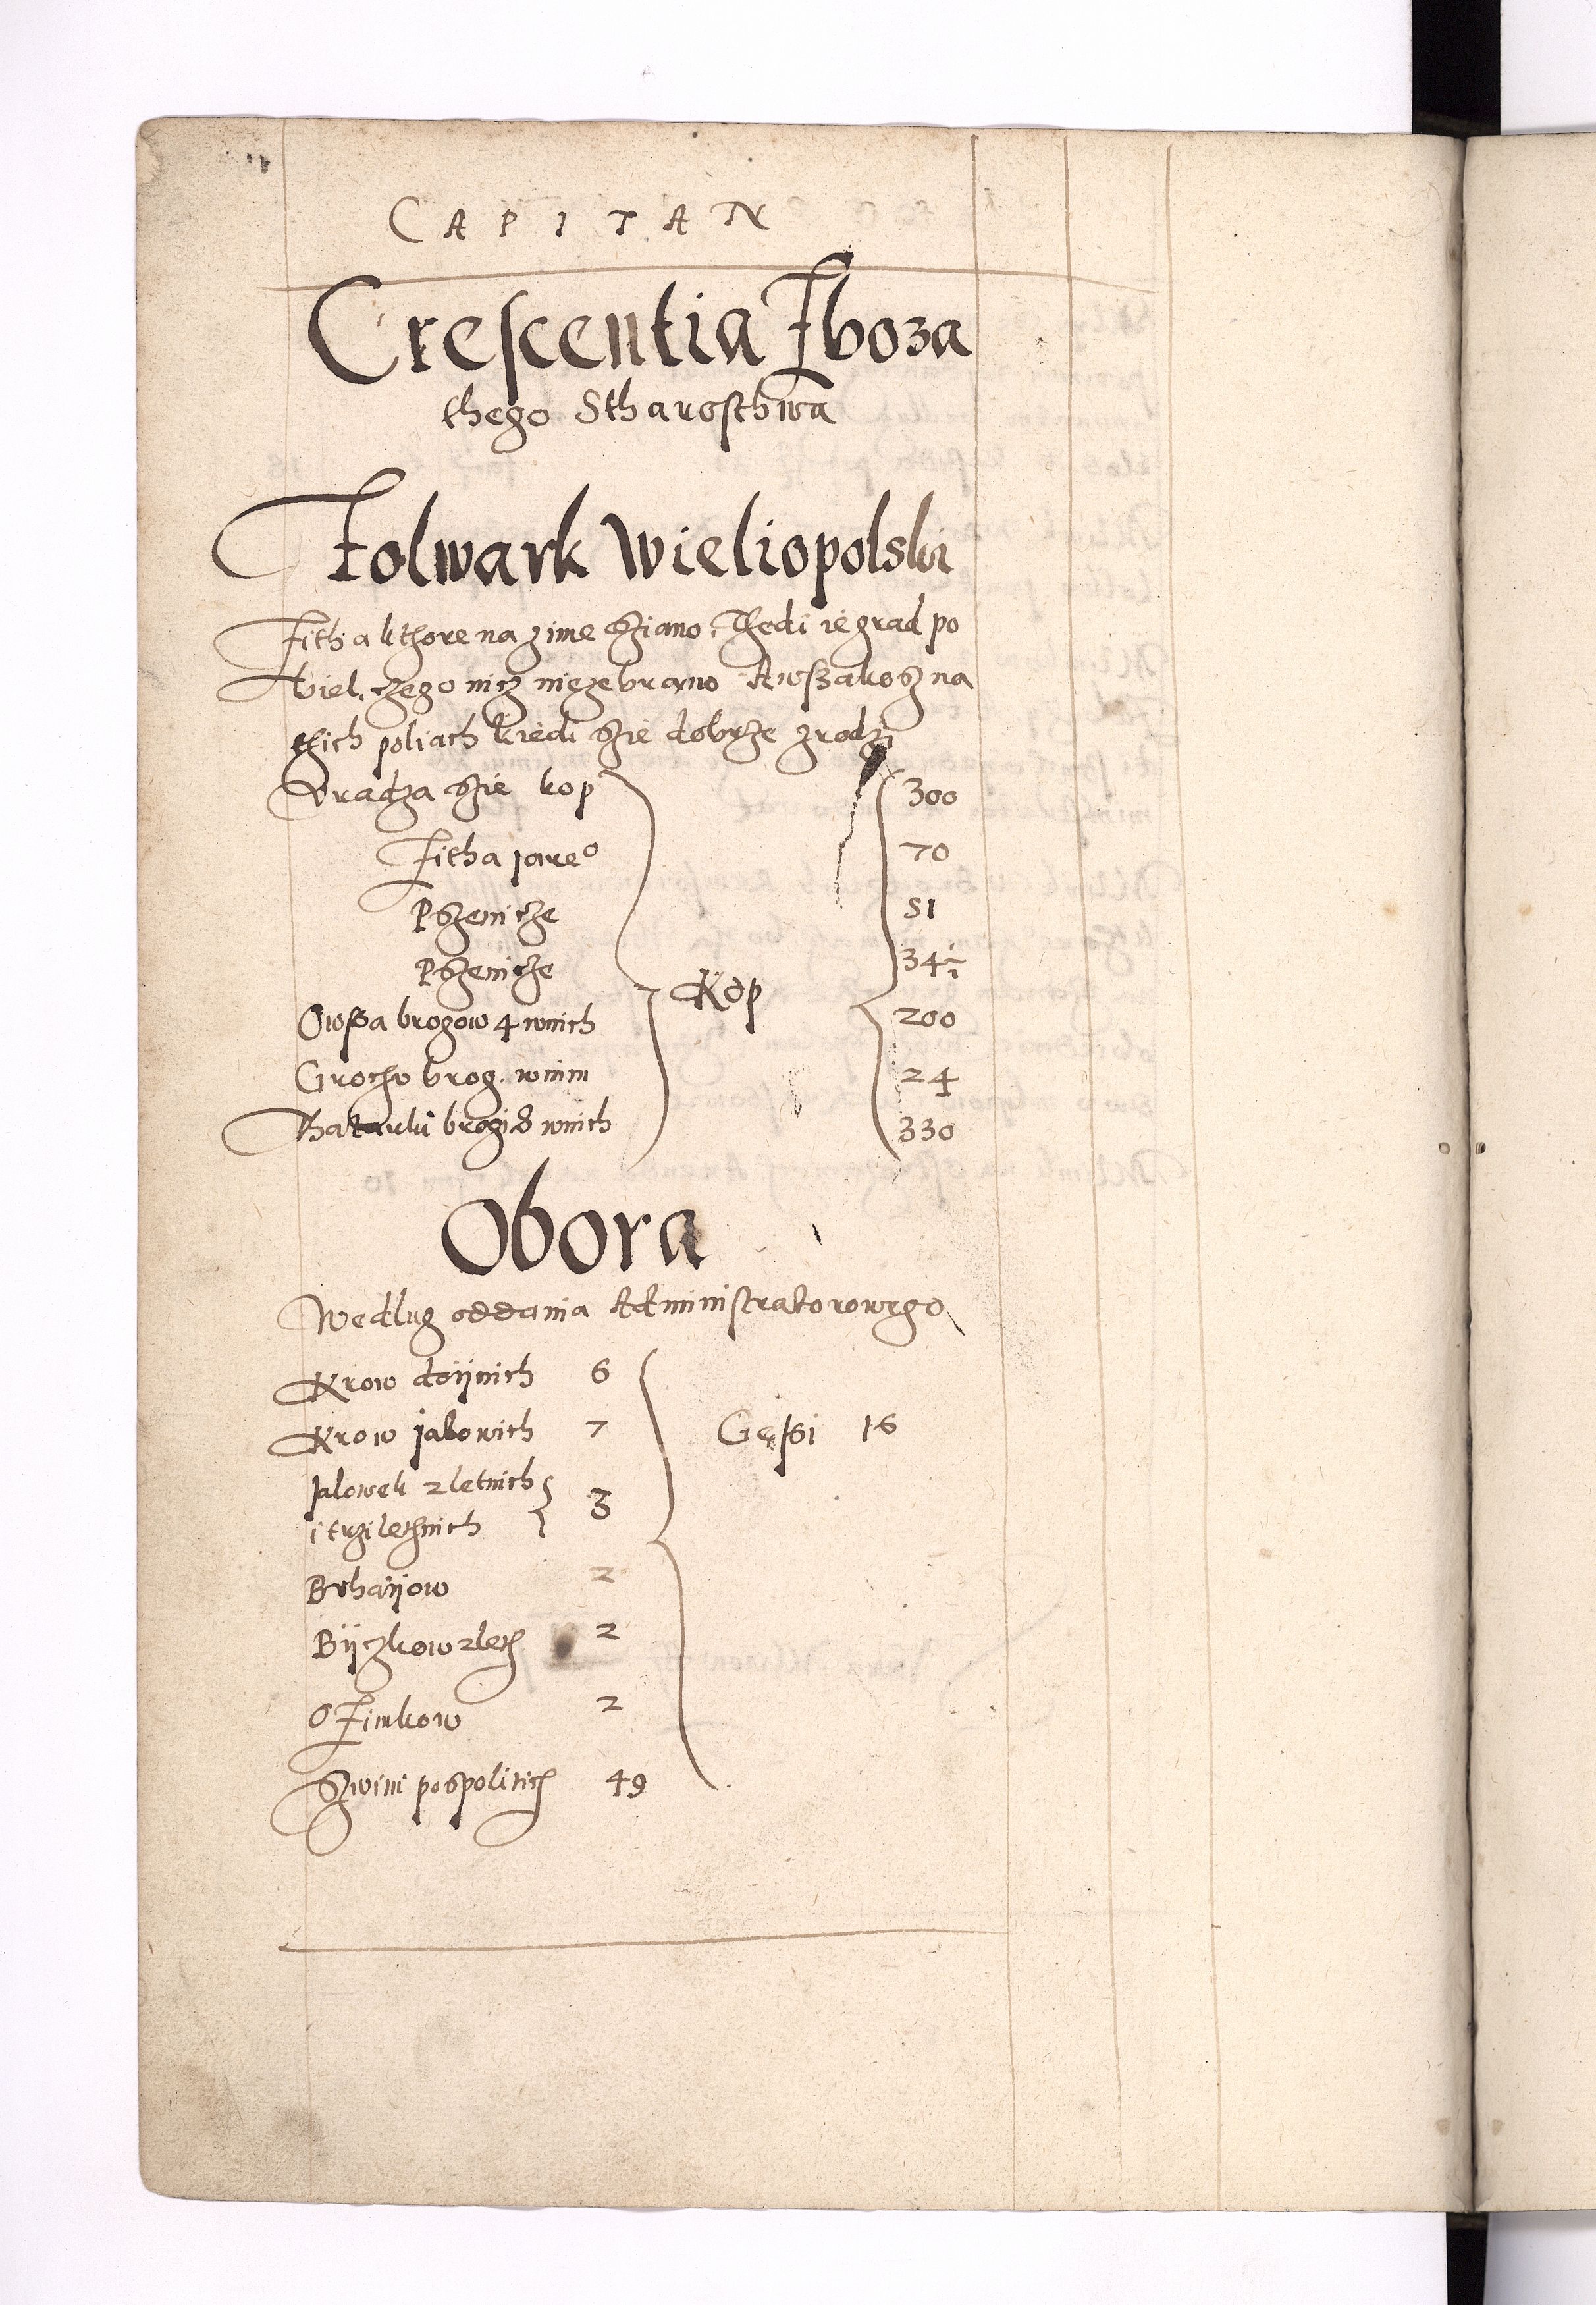 CAPITAN
Crescentia Zboza
thego Stharosthwa
Folwark Wieliopolski
Zitha kthore na zime sziano, Thedi ie grad po
biel, czego nicz niezebrano Awszakosz na
thich poliach kiedi szie dobrze zrodzi
Vradza szie kop 300
Zitha jareo 70
Pszenicze 51
Pszenicze 34½
Kop
Owsa brogow 4 wnich 200
Grochv brog. wnim 24
Thatarki brogi 8 wnich 330
Obora
Wedlug oddania Administratorowego
Krow doijnich 6
Krow jalowich 7
Gęssi 16
Jalowek 2letnich
i trzilethnich 3
Bvhaijow 2
Bijczkow 2leth 2
Ozimkow 2
Szwini pospolitich 49